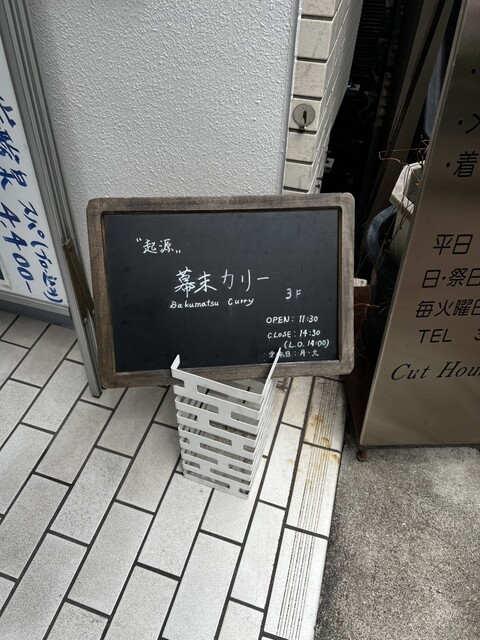 "起源"
幕末カリー
Bakumatsu Curry
3F
OPEN: 11:30
CLOSE: 14:30
(L.O. 14:00)
定休日:月・火
4400-
スパ(70分)
・着
平日
日・祭日
毎火曜日
TEL 3
Cut Hou